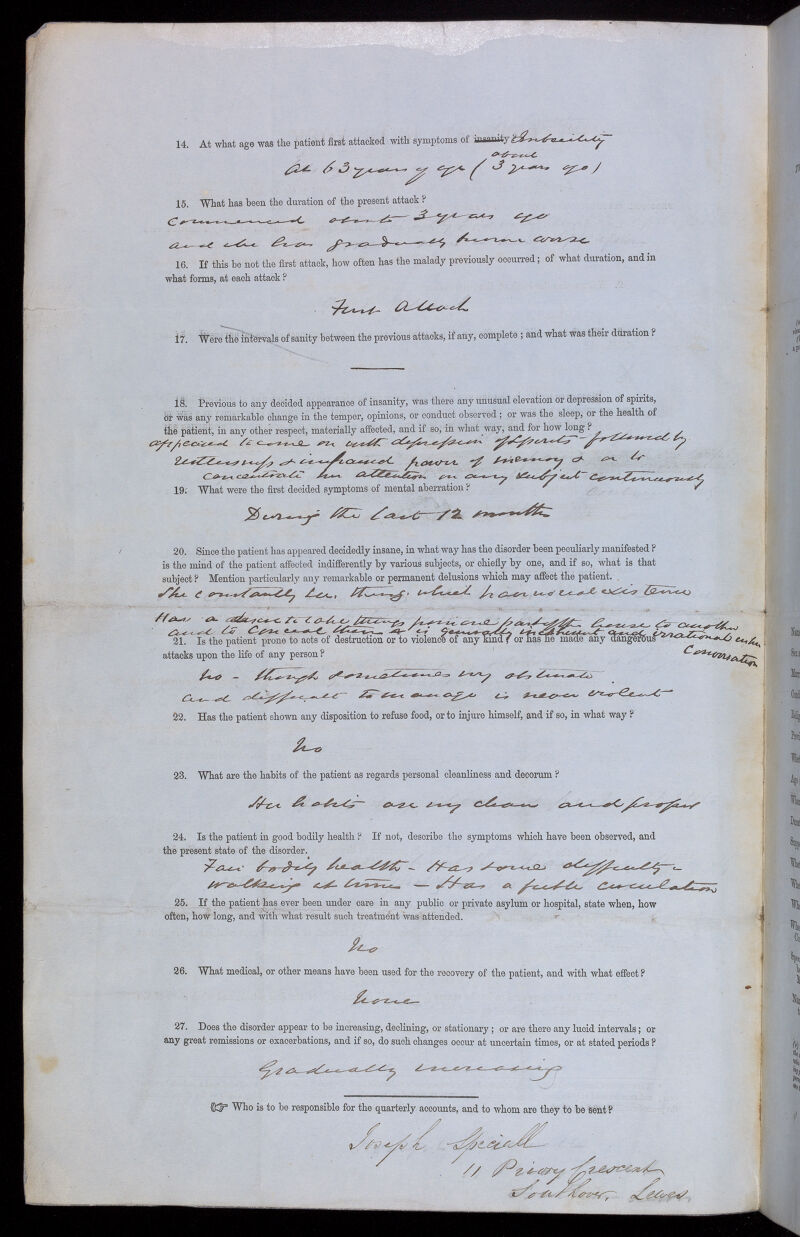 14. At what age was the patient first attacked with symptoms of insanity Imbecility
about
At 63 years of age (3 years ago)
15. What has been the duration of the present attack?
Commenced about 3 years ago
and she has gradually become worse
16. If this be not the first attack, how often has the malady previously occurred; of what duration, and in
what forms, at each attack?
First Attack
17. Were the intervals of sanity between the previous attacks, if any, complete; and what was their duration?
18. Previous to any decided appearance of insanity, was there any unusual elevation or depression of spirits,
or was any remarkable change in the temper, opinions, or conduct observed; or was the sleep, or the health of
the patient, in any other respect, materially affected, and if so, in what way, and for how long?
appeared to come on with depression of spirits - followed by
restlessness & impaired power of memory & or to
concentrate her attention on any subject continuously
19. What were the first decided symptoms of mental aberration?
During the last 12 months
20. Since the patient has appeared decidedly insane, in what way has the disorder been peculiarly manifested?
is the mind of the patient affected indifferently by various subjects, or chiefly by one, and if so, what is that
subject? Mention particularly any remarkable or permanent delusions which may affect the patient.
She constantly sees things which have no real existence
Has a desire to take things from one part of the house to another
and to conceal them & is generally incoherent and irrational in her
conversation
21. Is the patient prone to acts of destruction or to violence of any kind; or has he made any dangerous
attacks upon the life of any person?
No - though sometimes very obstinate
and difficult to manage is never violent
22. Has the patient shown any disposition to refuse food, or to injure himself, and if so, in what way?
No
23. What are the habits of the patient as regards personal cleanliness and decorum?
Her habits are very clean and proper
24. Is the patient in good bodily health? If not, describe the symptoms which have been observed, and
the present state of the disorder.
Fair bodily health - Has some difficulty in
walking at times - Has a feeble circulation
25. If the patient has ever been under care in any public or private asylum or hospital, state when, how
often, how long, and with what result such treatment was attended.
No
26. What medical, or other means have been used for the recovery of the patient, and with what effect?
None
27. Does the disorder appear to be increasing, declining, or stationary; or are there any lucid intervals; or
any great remissions or exacerbations, and if so, do such changes occur at uncertain times, or at stated periods?
Gradually increasing
☞ Who is to be responsible for the quarterly accounts, and to whom are they to be sent?
Joseph Speciall
11 Priory Crescent
Southover, Lewes